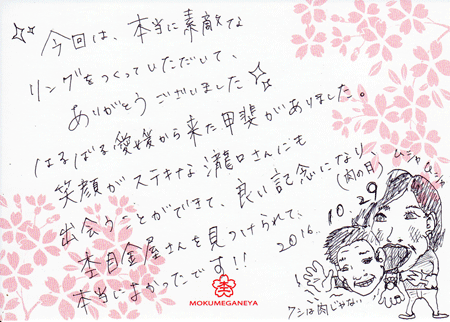 今回は、本当に素敵な
リングをつくっていただいて、
ありがとうございました
はるばる愛媛から来た甲斐がありました。
笑顔がステキな瀧口さんにも
出会うことができて、良い記念になり、
杢目金屋さんを見つけられて、
本当によかったです!!
2016.10.29
(肉の日)
ムシャムシャ
クシは肉じゃない
MOKUMEGANEYA